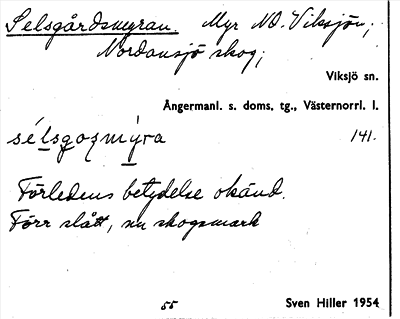 Selsgårdsmyran. Myr NO. Viksjön,
Nordansjö skog;
Viksjö sn.
Ångermanl. s. doms. tg., Västernorrl. l.
sélsgoʒmýra 141.
Förledens betydelse okänd.
Förr slått, nu skogsmark
55 Sven Hiller 1954